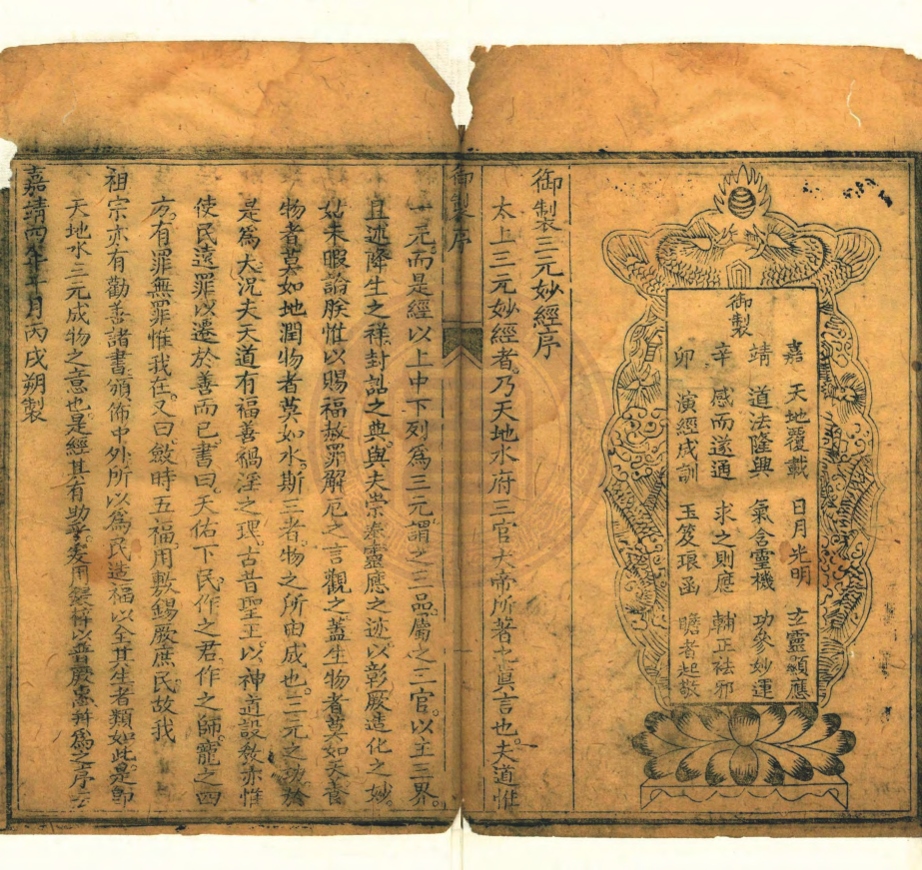 御製
嘉 天地覆載 日月光明 玄靈顯應
靖 道法隆興 氣含靈機 功參妙運
辛 感而遂通 求之則應 輔正祛邪
卯 演經成訓 玉笈琅函 瞻者起敬
御製三元妙經序
太上三元妙經者。乃天地水府三官大帝所著之眞言也。夫道惟
御製序
一元而是經以上中下列爲三元謂之三品。屬之三官。以主三界。
且述降生之祥封誥之典。與夫崇奉靈應之迹。以彰厥造化之妙。
姑未暇論朕惟以賜福赦罪解厄之言觀之蓋生物者莫如天養
物者莫如地潤物者莫如水。斯三者。物之所由成也。三元之功於
是爲大。況夫天道有福善禍淫之理。古昔聖王以神道設教亦惟
使民遠罪以遷於善而已。書曰。天佑下民。作之君。作之師。寵之四
方。有罪無罪惟我在。又曰。斂時五福。用敷錫厥庶民。故我
祖宗亦有勸善諸書。頒佈中外。所以爲民造福。以全其生者類如此。是卽
天地水三元成物之意也。是經其有助乎。爰用以普厥惠。爲之序云
嘉靖年月丙戌朔製